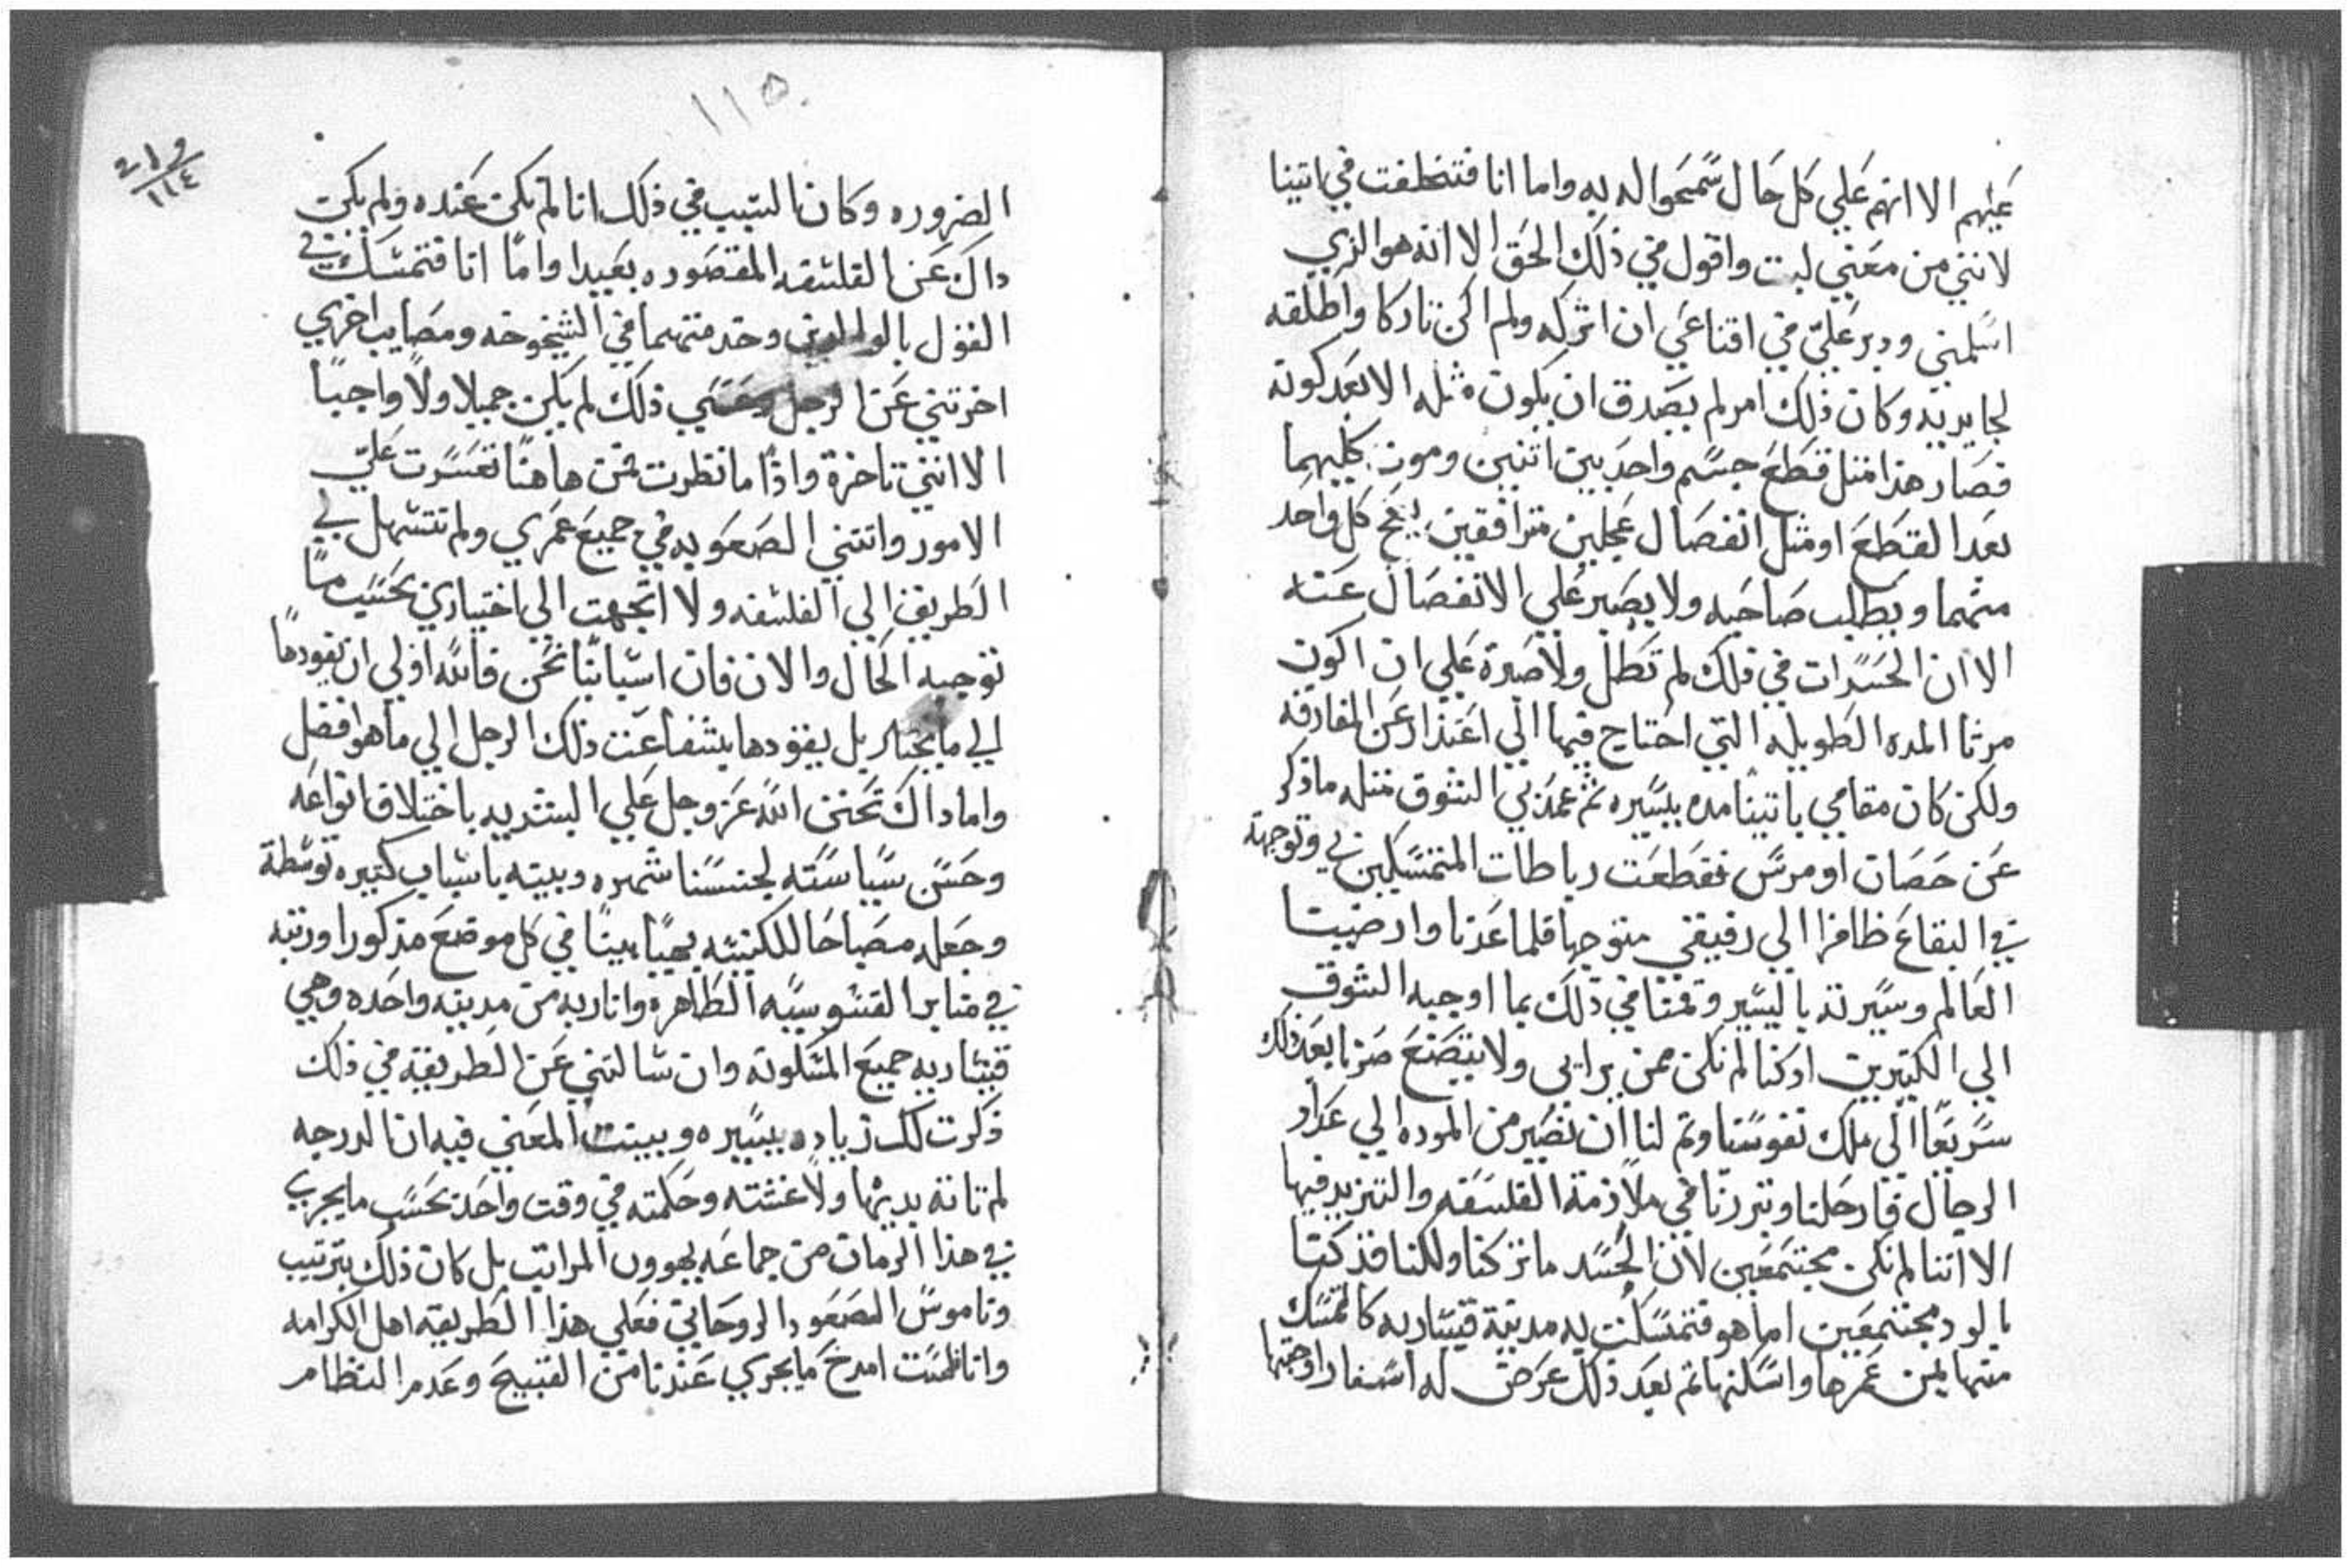 عنهم الا انهم علي كل حال سمحوا له به واما انا فتخلفت في اتينا
لانني من معني لبت واقول في ذلك الحق الا انه هو الذي
اسلمني ودبر علي في اقناعي ان اتركه ولم اكن تاركا واطلقه
لجا يريد وكان ذلك امر لم يصدق ان يكون مثله الا بعد كونه
فصار هذا متل قطع جسم واحد بين اتنين وموت كليهما
بعد القطع او مثل انفصال عجلين مترافقين كل واحد
منهما ويطلب صاحبه ولا يصبر علي الانفصال عنه
الا ان الحسرات في ذلك لم تطل ولا صبرة علي ان اكون
مرثا المده الطويله التي احتاج فيها الي اعتذار عن المفارقه
ولكن كان مقامي باتينا مده يسيره ثم عمد بي الشوق متله ما ذكر
عن حصان اومرس فقطعت رباطات المتمسكين بي وتوجهة
في البقاع ظافرا الي رفيقي متوجها فلما عدنا وارضينا
العالم وسيرته باليسير وقمنا في ذلك بما اوجبه الشوق
الي الكتيرين اذ كنا لم نكن ممن يرايي ولا يتصنع صرنا بعد ذلك
سريعا الي ملك نفوسنا وتم لنا ان نصير من الموده الي عداد
الرجال فارحلنا وتبررنا في ملازمة الفلسفه والتزيد فيها
الا اننا لم نكن مجتمعين لان الحسد ما تركنا ولكنا قد كنا
بالود مجتمعين اما هو فتمسكت به مدينة قيساريه كالمتمسك
منها لمن عمرها واسكنها تم بعد ذلك عرض له اسفار اوجبتها
١١٥
و ١ ٢
١١٤
الضروره وكان السبب في ذلك انا لم نكن عنده ولم يكن
داك عن الفلسفه المقصوره بعيدا واما انا فتمسك في
القول بالوالدين وخدمتهما في الشيخوخه ومصايب اخري
اخرتني عن الرجل وعسي ذلك لم يكن جميلا ولا واجبا
الا انني تاخرة واذا ما نظرت من هاهنا تعسرت علي
الامور واتتني الصعوبه في جميع عمري ولم تتسهل بي
الطريق الي الفلسفه ولا اتجهت الي اختياري بحسب ما
توجبه الحال والان فان اسبابنا نحن فالله اولي ان يقودها
الي ما يختار بل يقودها بشفاعت ذلك الرجل الي ما هو افضل
واما داك تحنن الله عز وجل علي البشريه باختلاف انواعه
وحسن سياسته لجنسنا شهره وبيته باسباب كتيره توسطة
وجعله مصباحا للكنيسه بهيا بينا في كل موضع مذكورا ورتبه
في منابر القسوسيه الطاهره وانار به من مدينه واحده وهي
قيساريه جميع المسكونه وان سالتني عن الطريقة في ذلك
ذكرت لك زياده يسيره وبينت المعني فيه ان الدرجه
لم تاته بديها ولا غسته وحكمته في وقت واحد بحسب ما يجري
في هذا الزمان من جماعه يهوون المراتب بل كان ذلك بترتيب
وناموس الصعود الروحاني فعلي هذا الطريقه اهل الكرامه
وانا لست امدح ما يجري عندنا من القبيح وعدم النظام